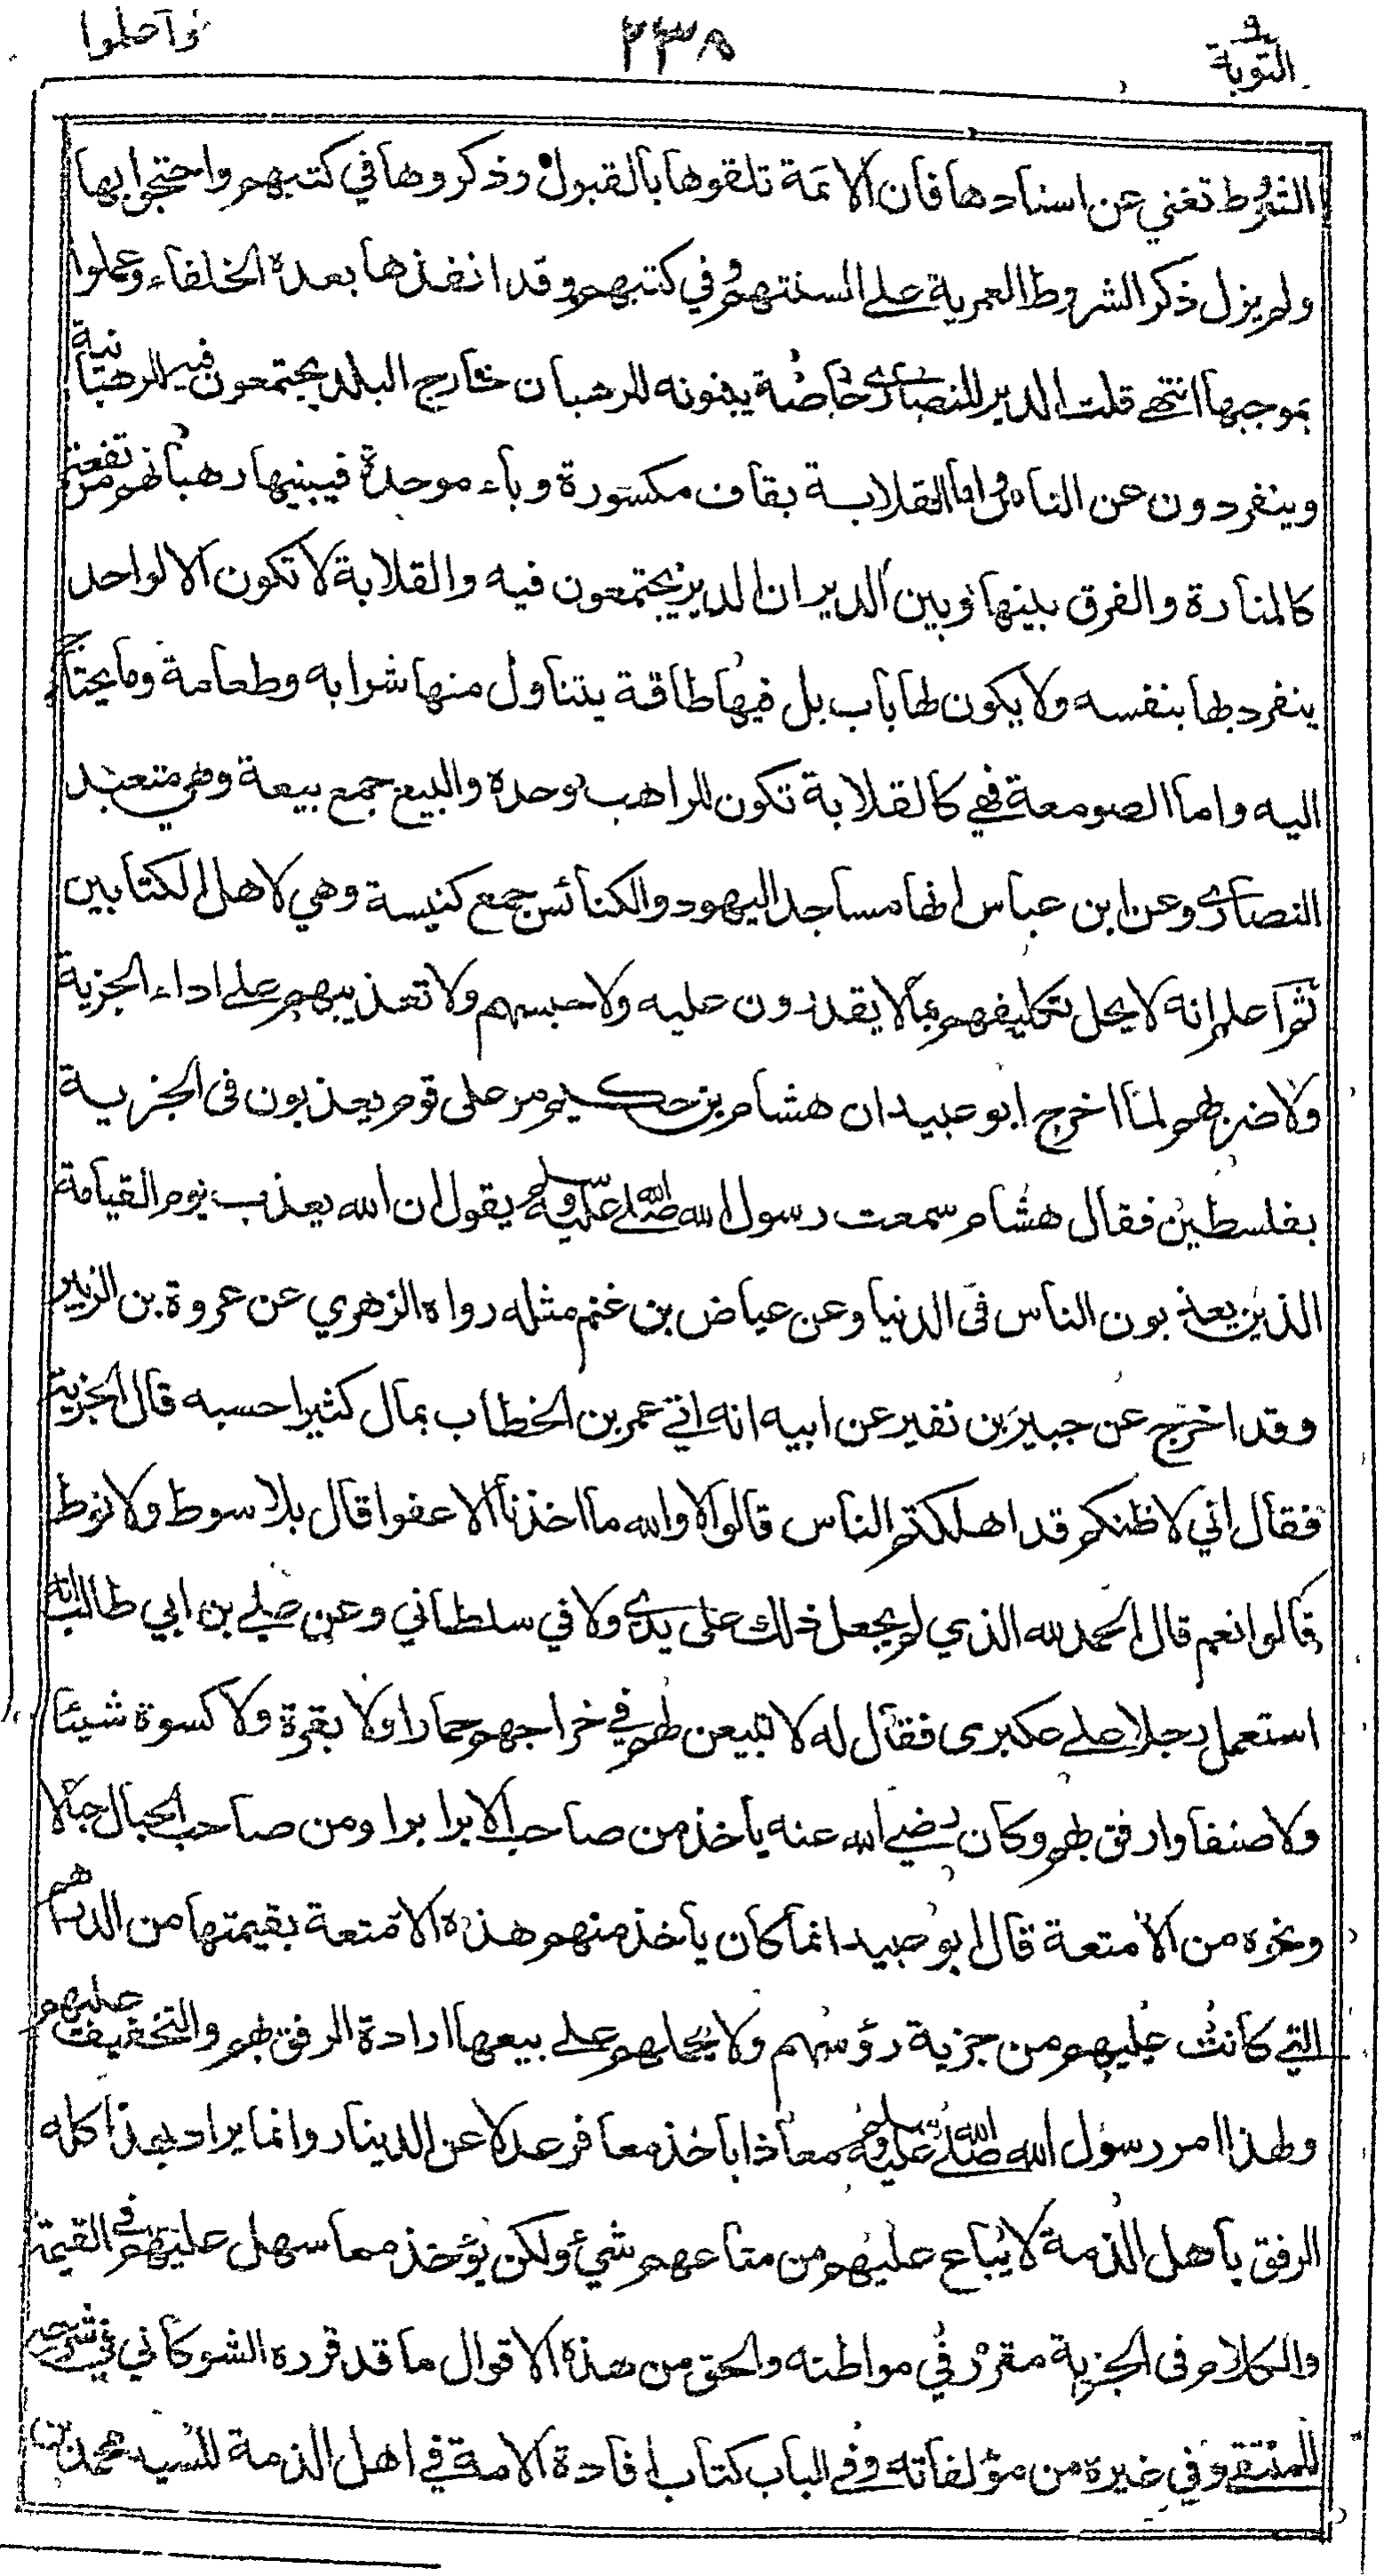 واعلموا
٢٣٨
التوبة ٩
الشروط تغني عن اسنادها فان الائمة تلقوها بالقبول وذكروها في كتبهم واحتجوا بها
ولم يزل ذكر الشروط العمرية على السنتهم وفي كتبهم وقد انفذها بعده الخلفاء وعملوا
بموجبها انتهى قلت الدير للنصارى خاصة يبنونه للرهبان خارج البلد يجتمعون فيه للرهبانية
وينفردون عن الناس واما القلابة بقاف مكسورة وباء موحدة فيبنيها رهبانهم مرتفعة
كالمنارة والفرق بينها وبين الدير ان الدير يجتمعون فيه والقلابة لا تكون الا لواحد
ينفرد بها بنفسه ولا يكون لها باب بل فيها طاقة يتناول منها شرابه وطعامه وما يحتاج
اليه واما الصومعة فهي كالقلابة تكون للراهب وحده والبيع جمع بيعة وهي متعبد
النصارى وعن ابن عباس انها مساجد اليهود والكنائس جمع كنيسة وهي لاهل الكتابين
ثم اعلم انه لا يحل تكليفهم بما لا يقدرون عليه ولا حبسهم ولا تعذيبهم على اداء الجزية
ولا ضربهم لما اخرج ابو عبيد ان هشام بن حكيم مر على قوم يعذبون فى الجزية
بفلسطين فقال هشام سمعت رسول الله صلى الله عليه وسلم يقول ان الله يعذب يوم القيامة
الذين يعذبون الناس فى الدنيا وعن عياض بن غنم مثله رواه الزهري عن عروة بن الزبير
وقد اخرج عن جبير بن نفير عن ابيه انه اتي عمر بن الخطاب بمال كثير احسبه قال الجزية
فقال اني لاظنكم قد اهلكتم الناس قالوا لا والله ما اخذنا الا عفوا قال بلا سوط ولا نوط
قالوا نعم قال الحمد لله الذي لم يجعل ذلك على يدي ولا في سلطاني وعن علي بن ابي طالب انه
استعمل رجلا على عكبرى فقال له لا تبيعن لهم في خراجهم حمارا ولا بقرة ولا كسوة شيئا
ولا صنفا وارفق بهم وكان رضي الله عنه ياخذ من صاحب الابر ابرا ومن صاحب الحبال حبالا
ونحوه من الامتعة قال ابو عبيد انما كان ياخذ منهم هذه الامتعة بقيمتها من الدراهم
التي كانت عليهم من جزية رؤسهم ولا يحملهم على بيعها ارادة الرفق بهم والتخفيف عليهم
ولهذا امر رسول الله صلى الله عليه وسلم معاذا باخذ معافر عدلا عن الدينار وانما يراد بهذا كله
الرفق باهل الذمة لا يباع عليهم من متاعهم شيء ولكن يؤخذ مما سهل عليهم في القيمة
والكلام فى الجزية مقرر في مواطنه والحق من هذه الاقوال ما قد قرره الشوكاني في شرحه
للمنتقى وفي غيره من مؤلفاته وفي الباب كتاب افادة الامة في اهل الذمة للسيد محمد بن